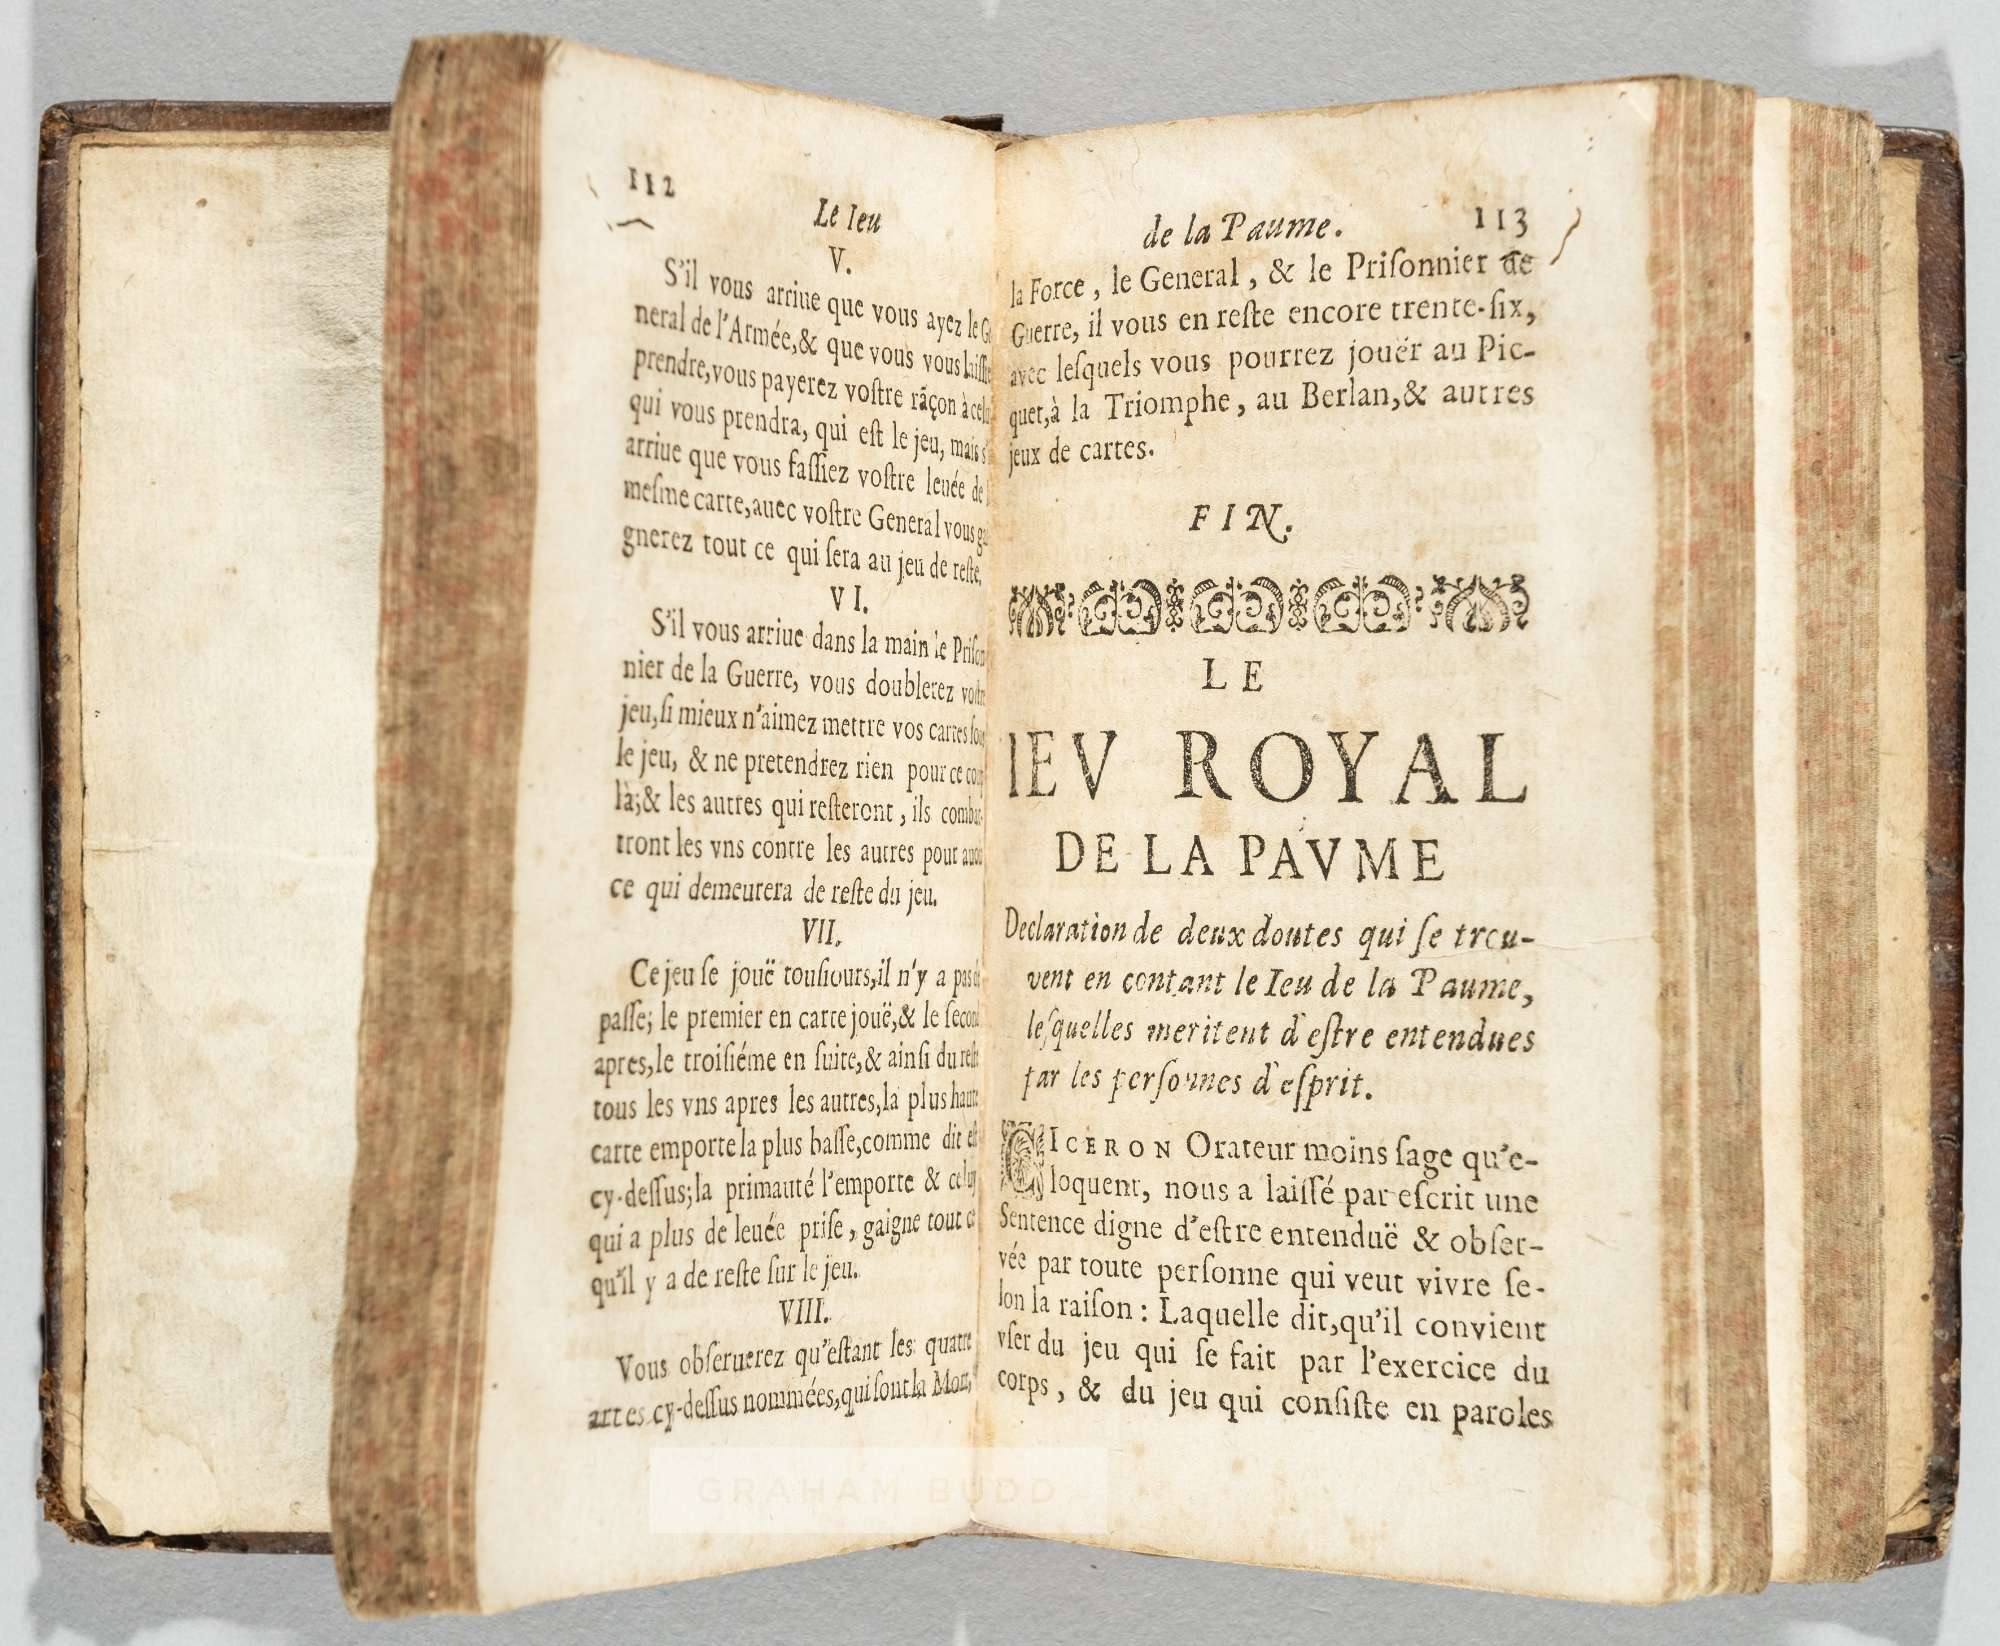 112
Le Ieu
V.
S'il vous arriue que vous ayez le Ge
neral de l'Armée,& que vous vous laissiez
prendre,vous payerez vostre rãçon à celui
qui vous prendra, qui est le jeu, mais s'
arriue que vous fassiez vostre leuée de
mesme carte,auec vostre General vous ga
gnerez tout ce qui sera au jeu de reste,
VI.
S'il vous arriue dans la main le Prison
nier de la Guerre, vous doublerez vostre
jeu,si mieux n'aimez mettre vos cartes sous
le jeu, & ne pretendrez rien pour ce coup
là;& les autres qui resteront, ils combat-
tront les vns contre les autres pour auoir
ce qui demeurera de reste du jeu.
VII.
Ce jeu se jouë tousiours,il n'y a pas de
passe; le premier en carte jouë,& le second
apres,le troisiéme en suite,& ainsi du reste
tous les vns apres les autres,la plus haute
carte emporte la plus basse,comme dit est
cy-dessus;la primauté l'emporte & celuy
qui a plus de leuée prise, gaigne tout ce
qu'il y a de reste sur le jeu.
VIII.
Vous obseruerez qu'estant les quatre
artes cy-dessus nommées,qui sont la Mort,
de la Paume. 113
la Force, le General, & le Prisonnier de
Guerre, il vous en reste encore trente-six,
avec lesquels vous pourrez jouër au Pic-
quet,à la Triomphe, au Berlan,& autres
jeux de cartes.
FIN.
LE
IEV ROYAL
DE LA PAVME
Declaration de deux doutes qui se trou-
vent en contant le Ieu de la Paume,
lesquelles meritent d'estre entendues
par les personnes d'esprit.
CICERON Orateur moins sage qu'e-
loquent, nous a laissé par escrit une
Sentence digne d'estre entenduë & obser-
vée par toute personne qui veut vivre se-
lon la raison: Laquelle dit,qu'il convient
vser du jeu qui se fait par l'exercice du
corps, & du jeu qui consiste en paroles
GRAHAM BUDD